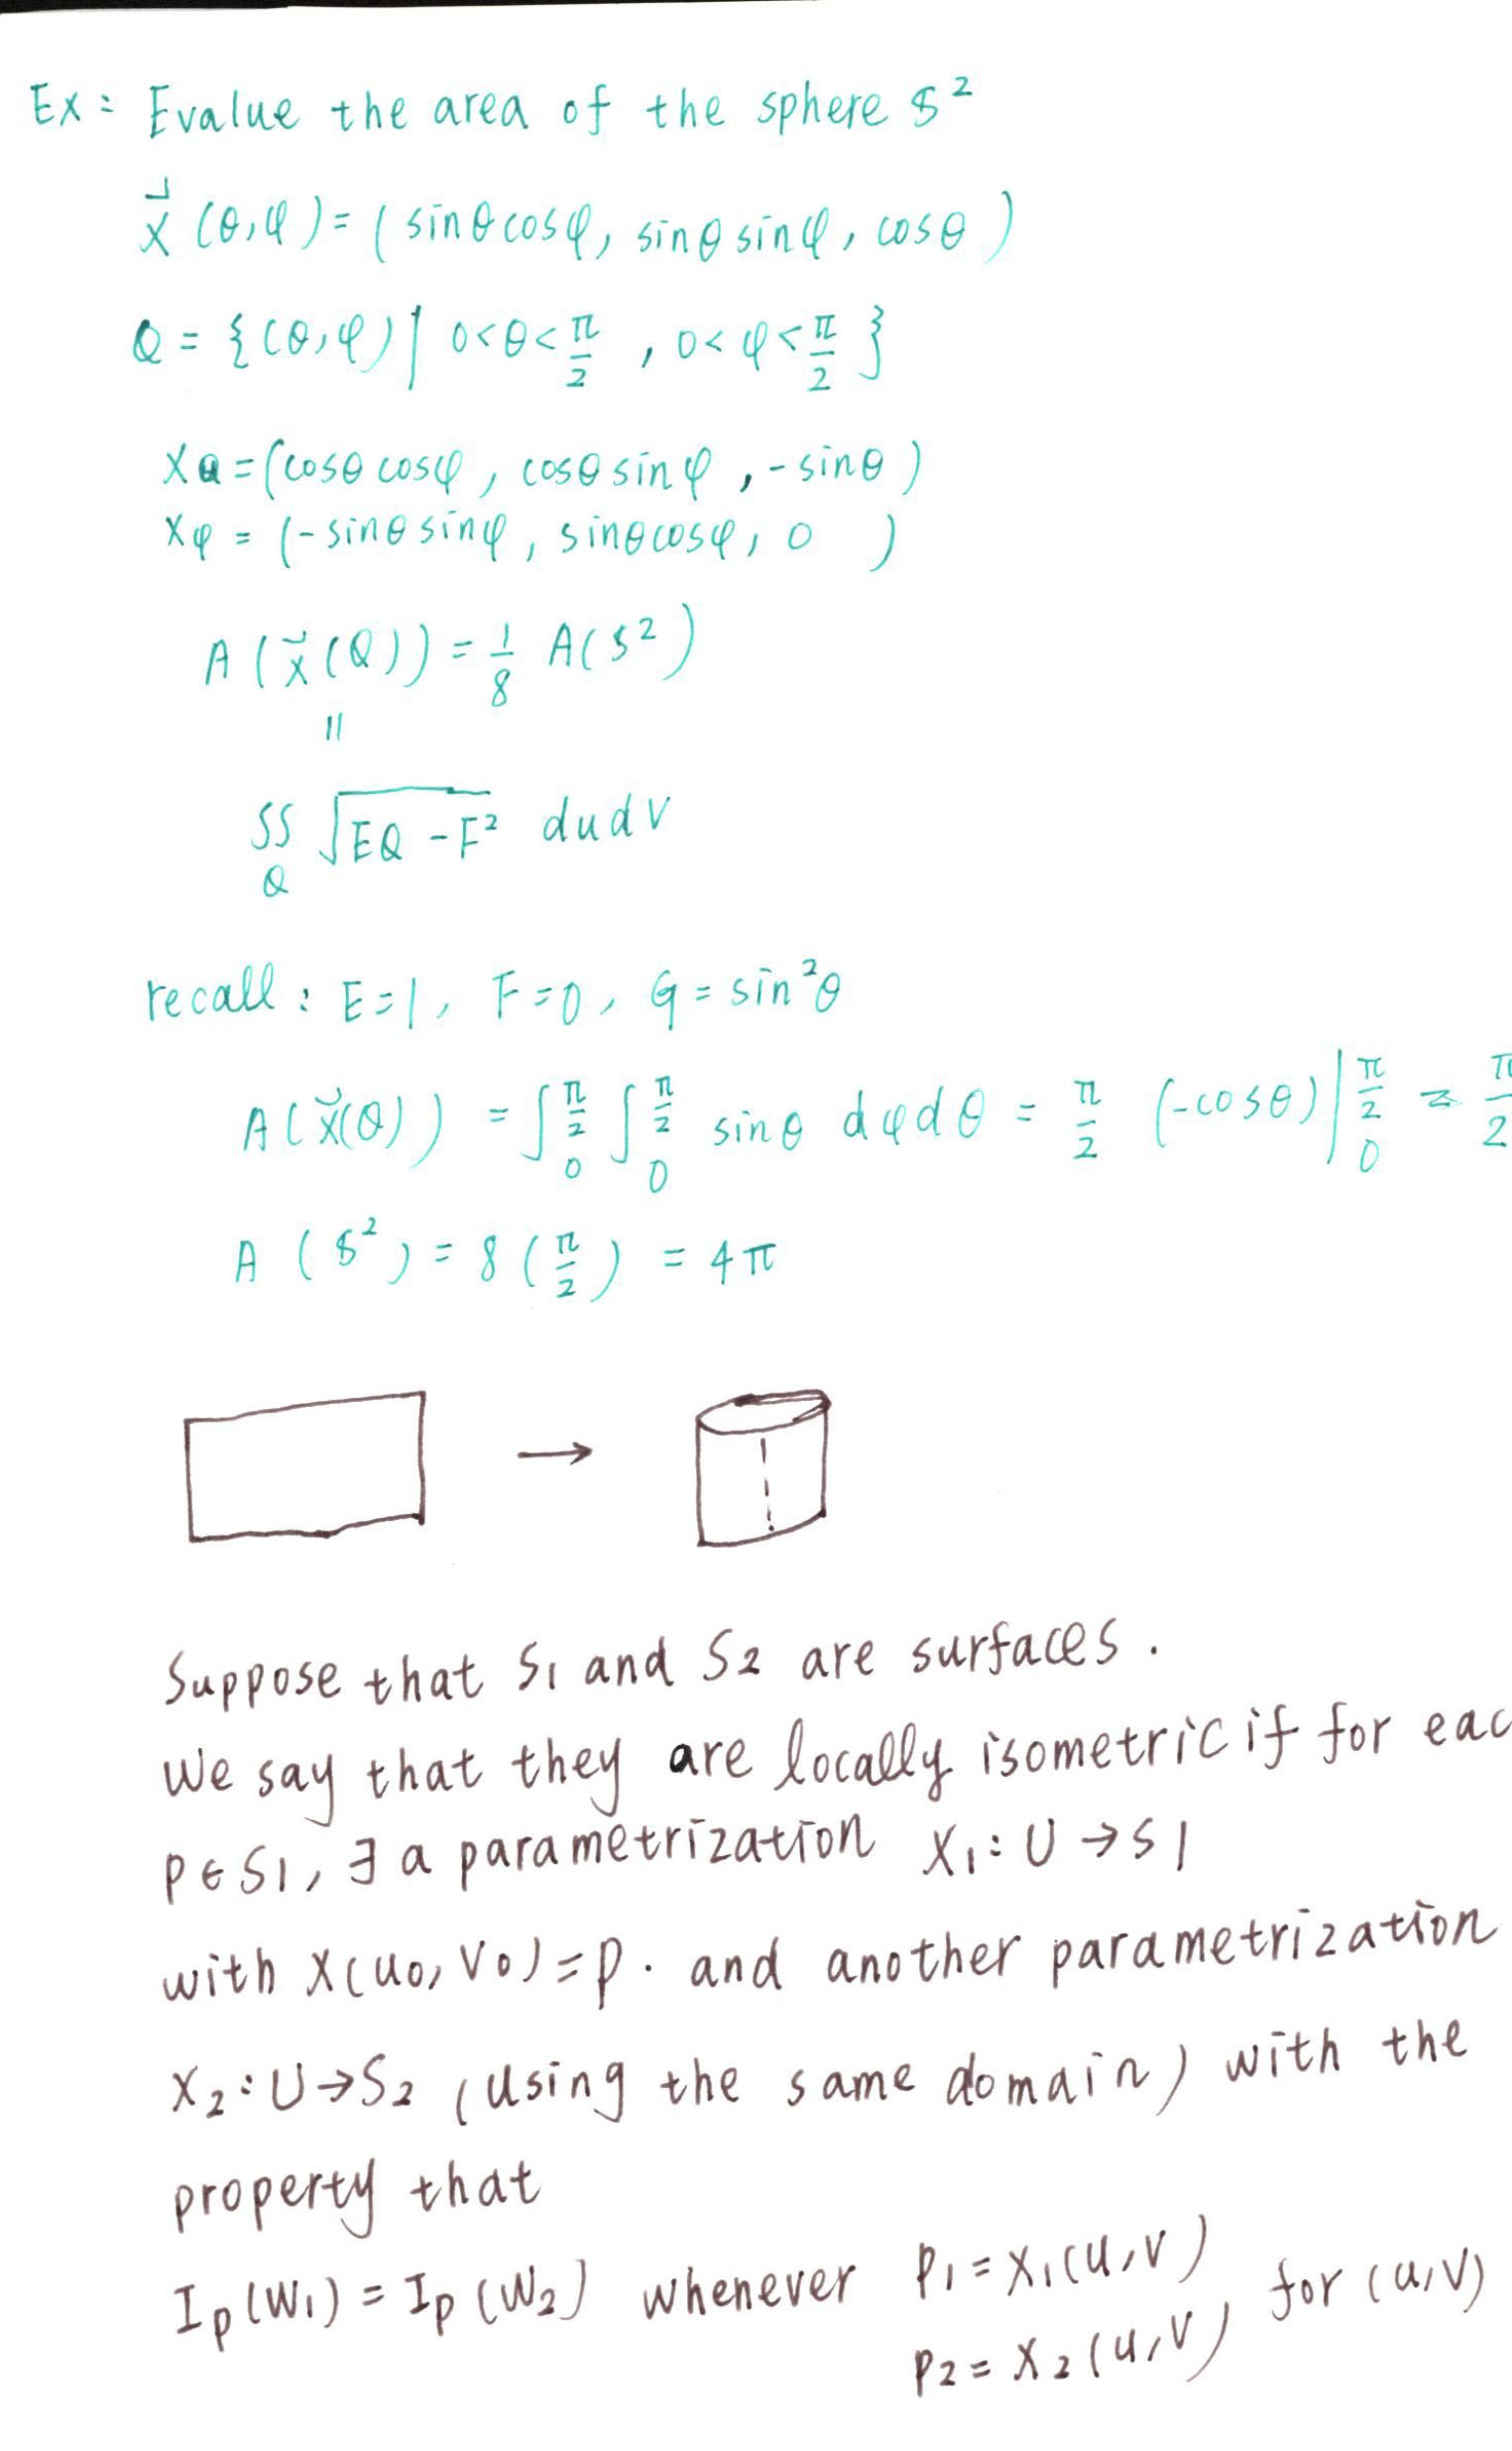 Ex: Evalue the area of the sphere S²
x⃗ (θ,φ) = ( sinθcosφ, sinθ sinφ, cosθ )
Q = {(θ,φ) | 0<θ<π/2 , 0<φ<π/2 }
xθ = (cosθ cosφ , cosθ sinφ , -sinθ )
xφ = (-sinθ sinφ , sinθcosφ, 0 )
A (x⃗(Q)) = 1/8 A(S²)
||
∬_Q √(EQ - F²) dudv
recall : E=1, F=0, G = sin²θ
A (x⃗(Q)) = ∫_0^(π/2) ∫_0^(π/2) sinθ dφdθ = π/2 (-cosθ)|_0^(π/2) = π/2
A (S²) = 8 (π/2) = 4π
→
Suppose that S1 and S2 are surfaces .
We say that they are locally isometric if for eac
p∈S1, ∃ a parametrization X1: U → S1
with X(u0, V0) = p . and another parametrization
X2: U→S2 (using the same domain) with the
property that
Ip(W1) = Ip (W2) whenever P1 = X1(u,v) for (u,v)
P2 = X2 (u,v)